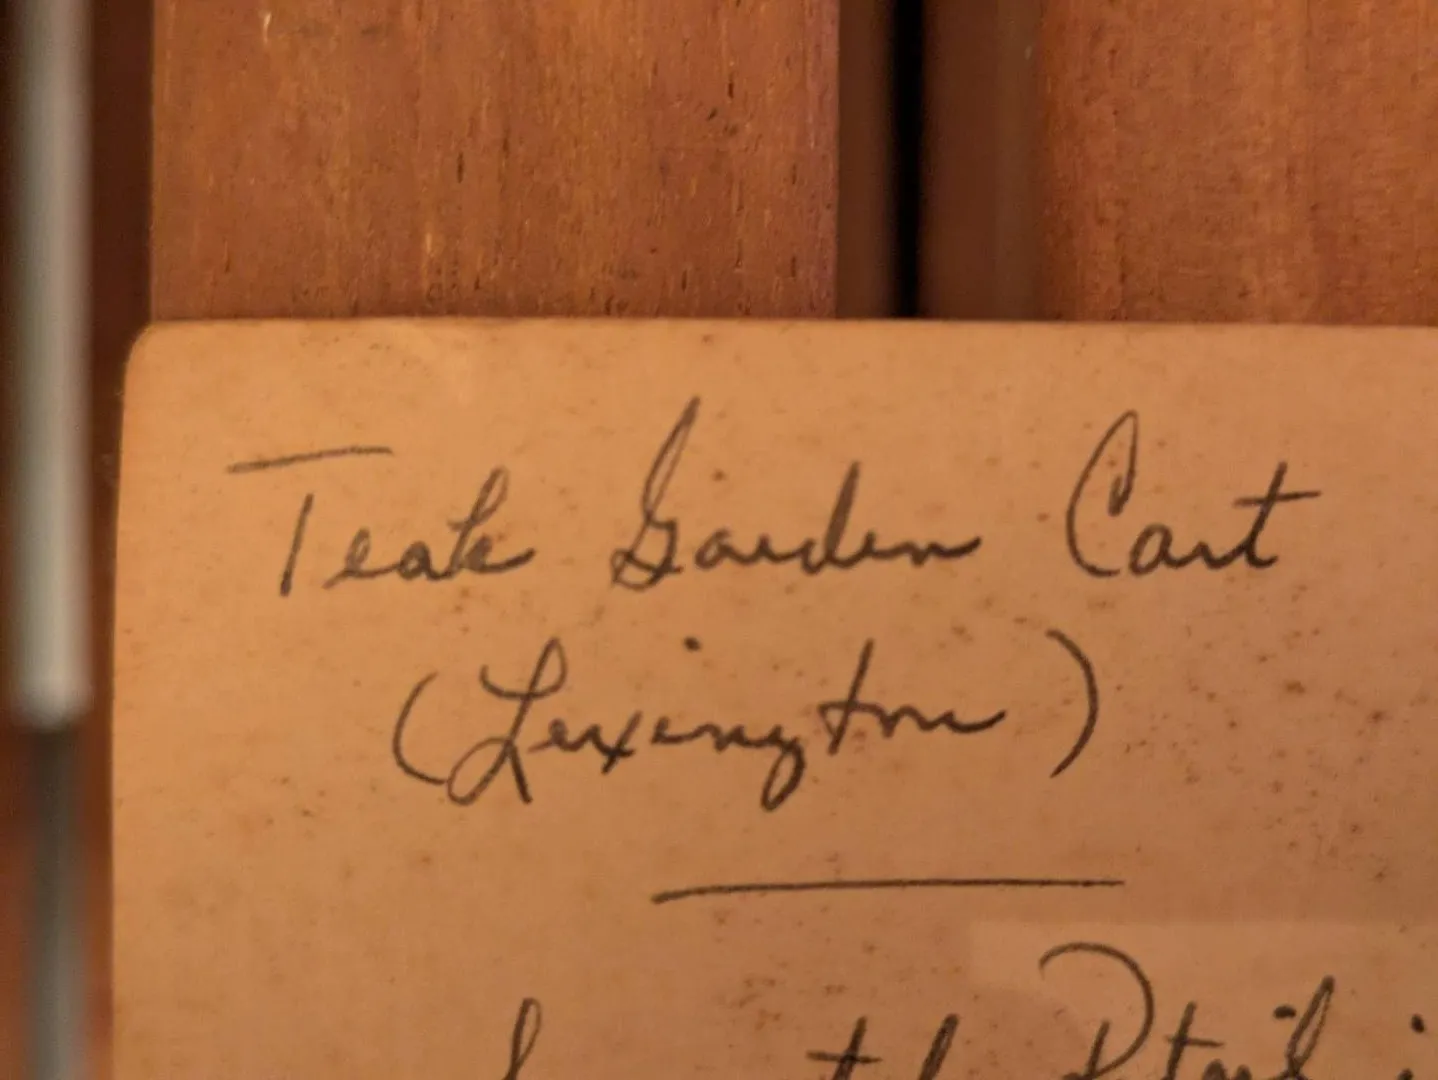 Teak Garden Cart
(Lexington)